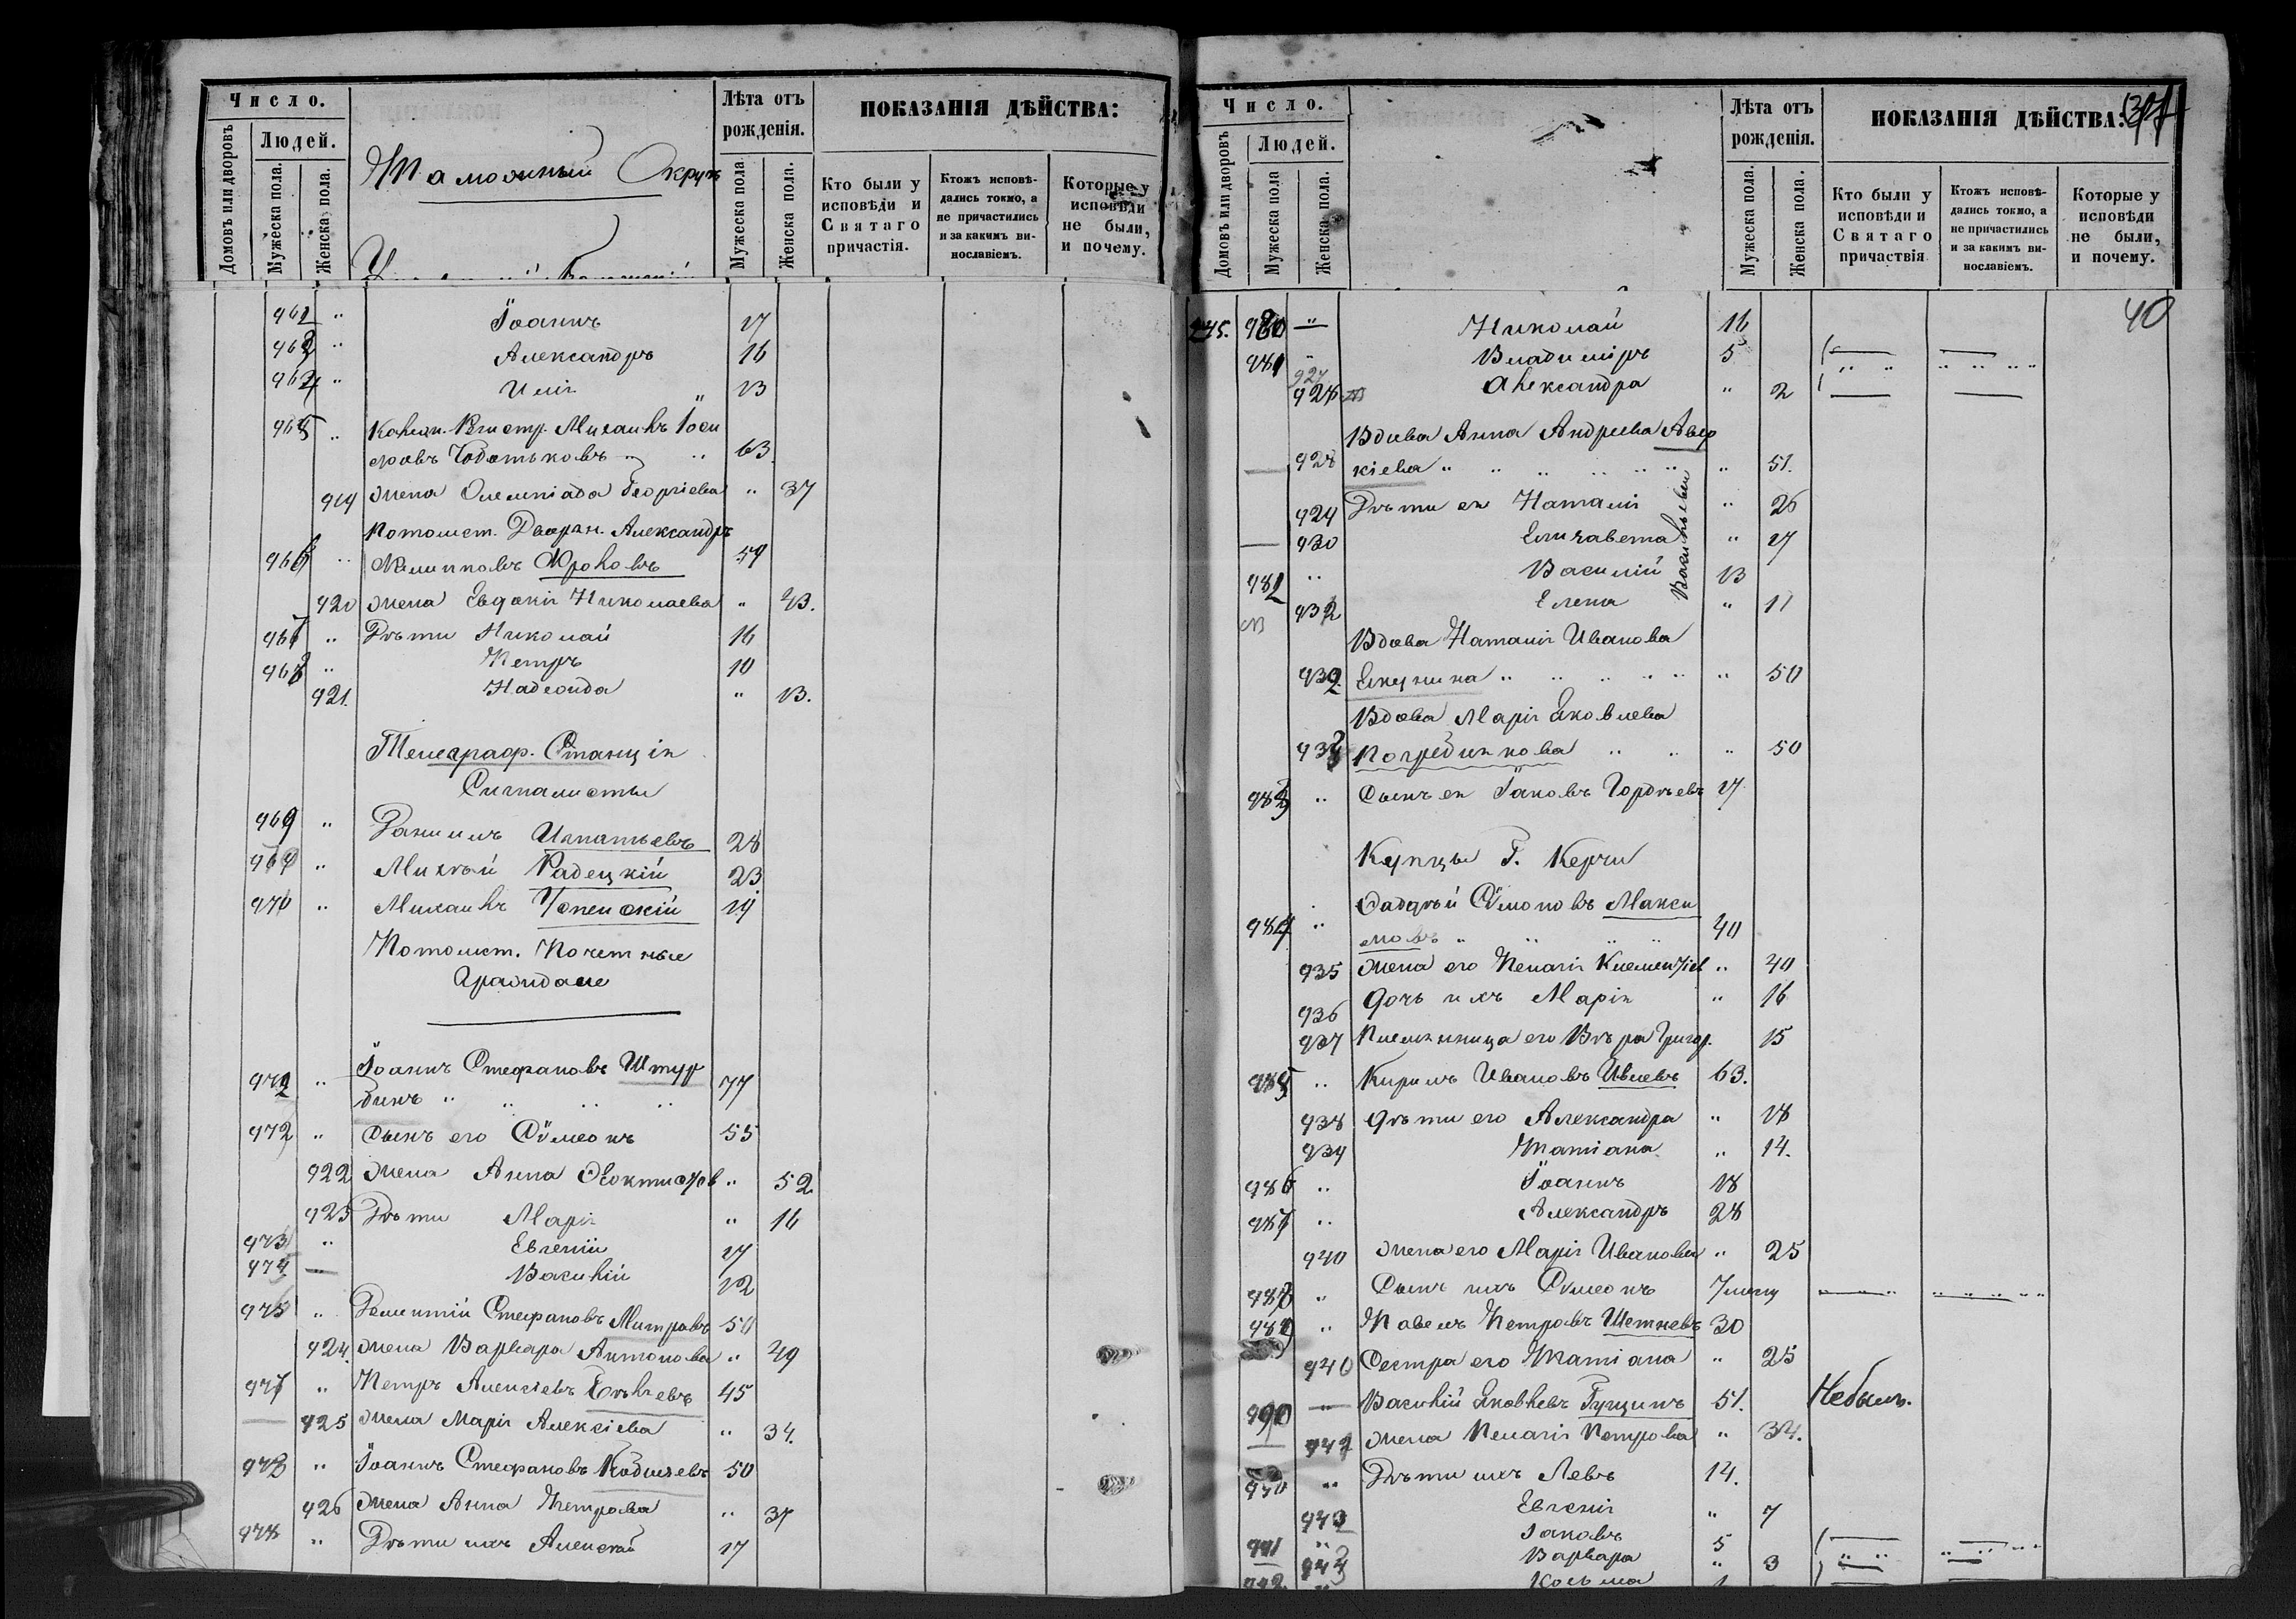 Число.
Домовъ или дворовъ
Людей.
Мужеска пола.
Женска пола.
Таможный Округъ
Лѣта отъ рожденія.
Мужеска пола
Женска пола.
ПОКАЗАНІЯ ДѢЙСТВА:
Кто были у исповѣди и Святаго причастія.
Ктожъ исповѣдались токмо, а не причастились и за какимъ винославіемъ.
Которые у исповѣди не были, и почему.
962 " Іоаннъ 17
963 " Александръ 16
964 " Илія 13
965 " Колеж. Регистр. Михаилъ Іоси
фовъ 63
919 жена Олимпіада Георгіева " 37
Потомст. Дворян. Александръ
966 " Фроловъ 59
920 жена Евдокія Николаева " 43.
967 " Дѣти Николай 16
968 " Петръ 10
921. Надежда " 13.
Телеграф. Станція
Сигналисты
969 " Даніилъ Игнатьевъ 28
" Михѣй Радецкій 23
970 " Михаилъ 19
Потомст. Почетные
Граждане
972 " Іоаннъ Стефановъ Штур
бинъ " " " " 77
972 " Сынъ его Сѵмеонъ 55
922 жена Анна Ѳеоктистов " 52
923 Дѣти Марія " 16
973 " Евгеній 17
974 — Василій 12
975 " Дементій Стефановъ Митровъ 50
924. жена Варвара Антонова " 49
977 " Петръ Алексіевъ 45
925 жена Марія Алексіева " 34.
978 " Іоаннъ Стефановъ 50
926 жена Анна Петрова " 37
978 " Дѣти ихъ Алексѣй 17
Число.
Домовъ или дворовъ
Людей.
Мужеска пола
Женска пола.
Лѣта отъ рожденія.
Мужеска пола.
Женска пола.
ПОКАЗАНІЯ ДѢЙСТВА:
Кто были у исповѣди и Святаго причаствія
Ктожъ исповѣдались токмо, а не причастились и за какимъ винославіемъ.
Которые у исповѣди не были, и почему.
40
980 — Николай 16
981 " Владиміръ 5
927
928 Александра " 2
Вдова Анна Андреева Авер
928 кіева " " " " " " " 51.
929 Дѣти ея Наталія " 26
930 Елизавета " 17
982 " Василій 13
Васильевы
932 Елена " 11
Вдова Наталія Иванова
932. " " " " " " 50
Вдова Марія Яковлева
933 Погребинкова " " " 50
983 " Сынъ ея Іаковъ Гордѣевъ 17
Купцы Г. Керчи
Фаддѣй Сѵмоновъ Макси
984 " мовъ " " " " 40
935 жена его Пелагія Клементіев " 40
936 дочь ихъ Марія " 16
937 Племянница его Вѣра Григор. 15
985 " Кирилъ Ивановъ Ивлевъ 63.
938 дѣти его Александра " 18
939 Татіана " 14.
986 " Іоаннъ 18
987 " Александръ 28
940 жена его Марія Иванова " 25
988 " Сынъ ихъ Сѵмеонъ 7 мѣсяц
989 " Павелъ Петровъ Шетневъ 30
940 Сестра его Татіана " 25
990 — Василій Яковлевъ Гущинъ 51. Небылъ.
942 жена Пелагія Петрова " 34.
990 " Дѣти ихъ Левъ 14.
943 Евгенія " 7
991 " Іаковъ 5
943 Варвара " 3
992. " Косьма 1